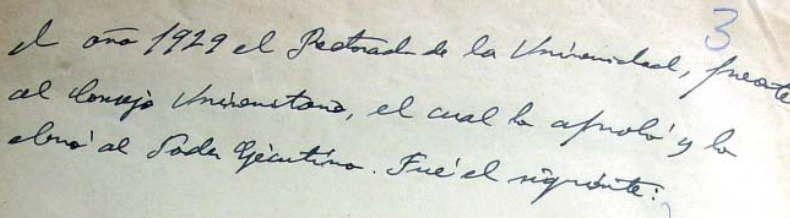 3
el año 1929 el Rectorado de la Universidad, frente
al Consejo Universitario, el cual lo aprobó y lo
elevó al Poder Ejecutivo. Fué el siguiente: